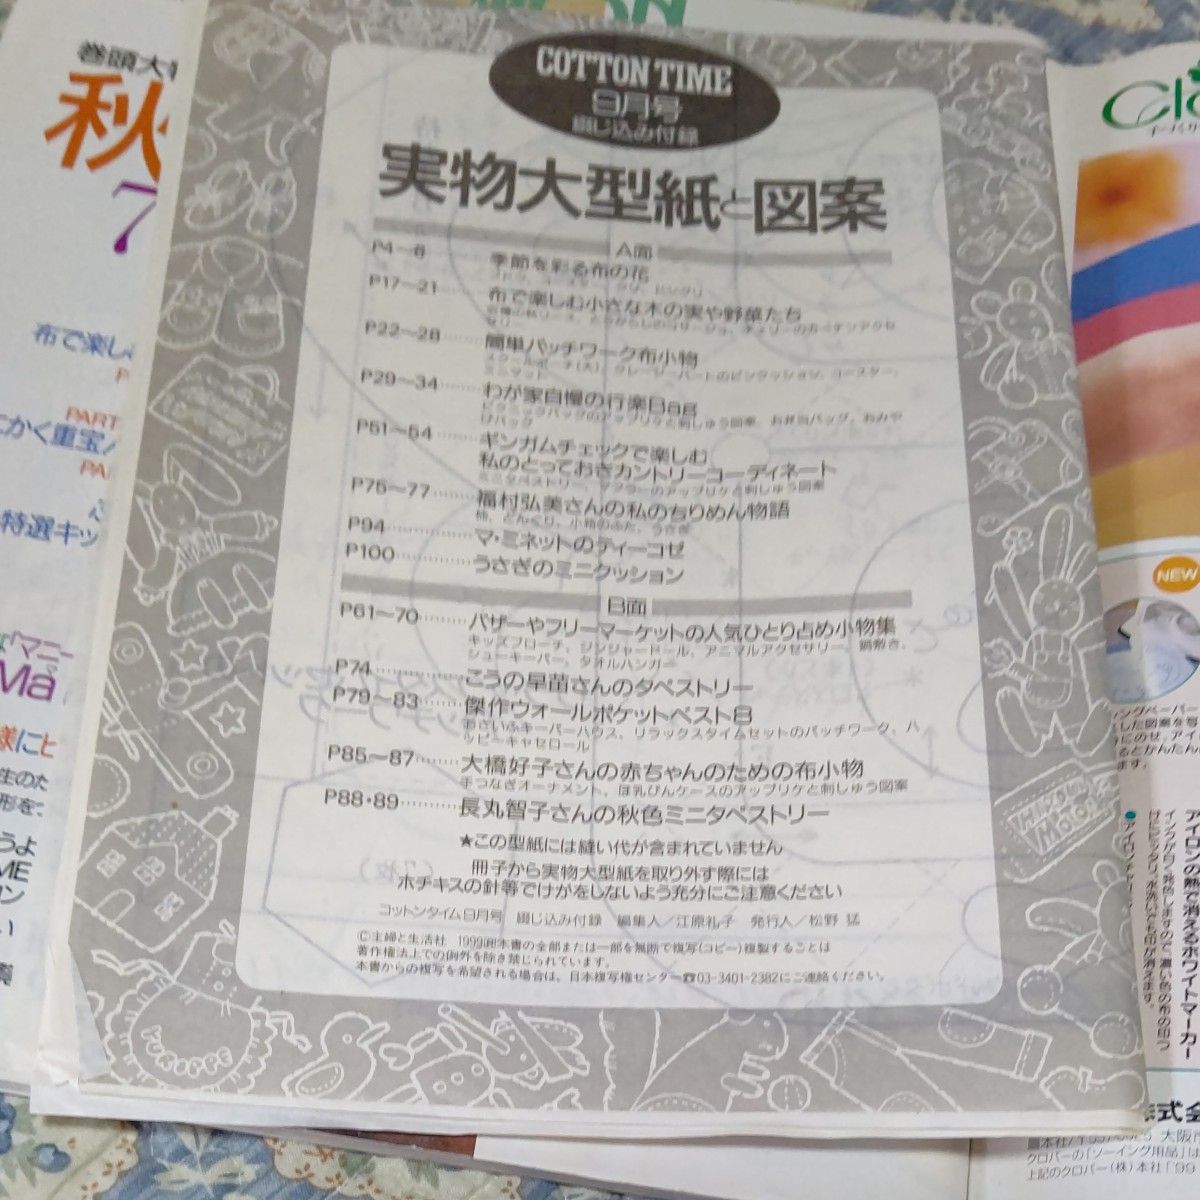 COTTON TIME
9月号
綴じ込み付録
実物大型紙と図案
A面
P4〜8 季節を彩る布の花
P17〜21 布で楽しむ小さな木の実や野菜たち
P22〜28 簡単パッチワーク布小物
P29〜34 わが家自慢の行楽Bag
ピクニックバッグのアップリケと刺しゅう図案、お弁当バッグ、おみや
げバッグ
P51〜54 ギンガムチェックで楽しむ
私のとっておきカントリーコーディネート
ミニタペストリー、マフラーのアップリケと刺しゅう図案
P75〜77 福村弘美さんの私のちりめん物語
柿、どんぐり、小箱のふた、うさぎ
P94 マ・ミネットのティーコゼ
P100 うさぎのミニクッション
B面
P61〜70 バザーやフリーマーケットの人気ひとり占め小物集
キッズブローチ、ジンジャードール、アニマルアクセサリー、鍋敷き、
シューキーパー、タオルハンガー
P74 こうの早苗さんのタペストリー
P79〜83 傑作ウォールポケットベスト8
おさいふキーパーハウス、リラックスタイムセットのパッチワーク、ハ
ッピーキャセロール
P85〜87 大橋好子さんの赤ちゃんのための布小物
手つなぎオーナメント、ほ乳びんケースのアップリケと刺しゅう図案
P88・89 長丸智子さんの秋色ミニタペストリー
★この型紙には縫い代が含まれていません
冊子から実物大型紙を取り外す際には
ホチキスの針等でけがをしないよう充分にご注意ください
コットンタイム9月号 綴じ込み付録 編集人/江原礼子 発行人/松野 猛
Ⓒ主婦と生活社 1999 本書の全部または一部を無断で複写(コピー)複製することは
著作権法上での例外を除き禁じられています。
本書からの複写を希望される場合は、日本複写権センター☎03-3401-2382にご連絡ください。
巻頭大
秋
7
布で楽し
PART
かく重宝
特選キッ
Ma
様にヒ
生のた
形を
うよ
ME
ン
い
NEW
アイロンの熱で消えるホワイトマーカー
式会
クロバーの「ソーイング用品」は
上記のクロバー(株)本社「'99